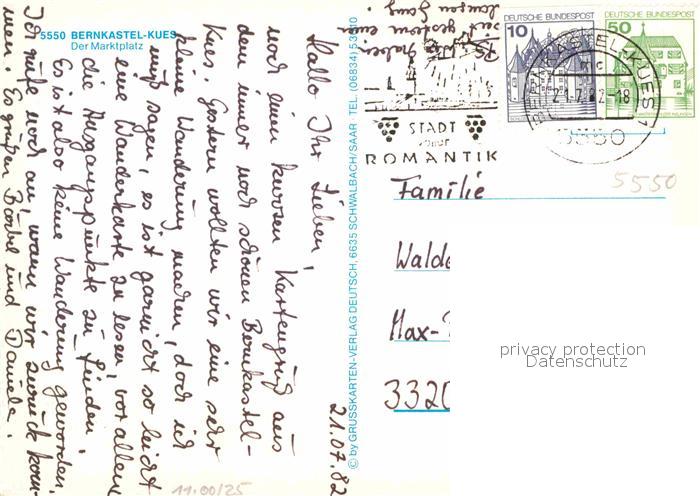 5550 BERNKASTEL-KUES
Der Marktplatz
21.07.82
Hallo Ihr Lieben,
noch einen kurzen Kartengruß aus
dem immer noch schönen Bernkastel-
Kues. Gestern wollten wir eine sehr
kleine Wanderung machen, doch ich
muß sagen, es ist garnicht so leicht
eine Wanderkarte zu lesen, vor allem
die Ausgangspunkte zu finden.
Es ist also keine Wanderung geworden.
Ich rufe noch an, wann wir zurück kom-
men. Es grüßen Bärbel und Daniela.
PS. Wir haben
seit gestern einen
© by GRUSSKARTEN-VERLAG DEUTSCH, 6635 SCHWALBACH/SAAR TEL. (06834) 53010
STADT
ROMANTIK
DEUTSCHE BUNDESPOST
10
DEUTSCHE BUNDESPOST
50
BERNKASTEL-KUES 1
mc
21.7.82-18
5550
5550
Familie
Walde
Max-
3320
privacy protection
Datenschutz
11.00/25